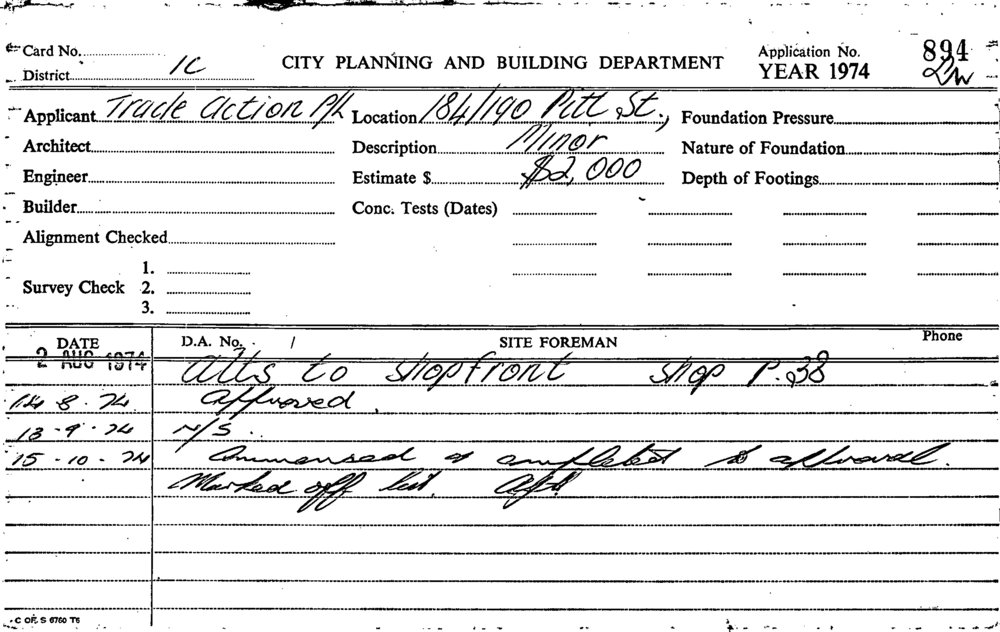 Card No.
CITY PLANNING AND BUILDING DEPARTMENT
Application No. 894
District 1C
YEAR 1974
Applicant Trade Action P/L Location 184/190 Pitt St., Foundation Pressure
Architect Description Minor Nature of Foundation
Engineer Estimate $ $2,000 Depth of Footings
Builder Conc. Tests (Dates)
Alignment Checked
1.
Survey Check 2.
3.
DATE D.A. No. / SITE FOREMAN Phone
2 AUG 1974 Alts to shopfront shop P.38
14-8-74 Approved.
13-9-74 N/S.
15-10-74 Commensed & completed to approval.
Marked off list.
C OF. S 6760 T6